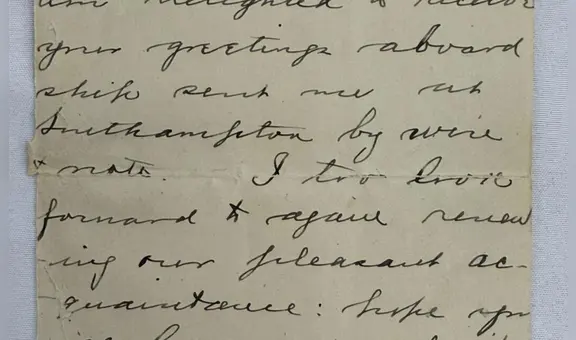 am delighted to receive
your greetings aboard
ship sent me at
Southampton by wire
& note. I too look
forward to again renew
-ing our pleasant ac-
quaintance: hope you